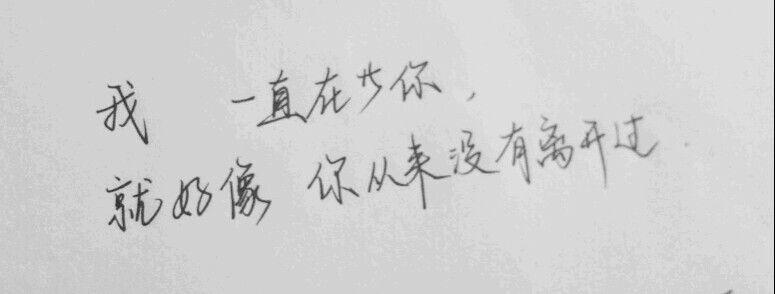 我 一直在等你,
就好像 你从来没有离开过.